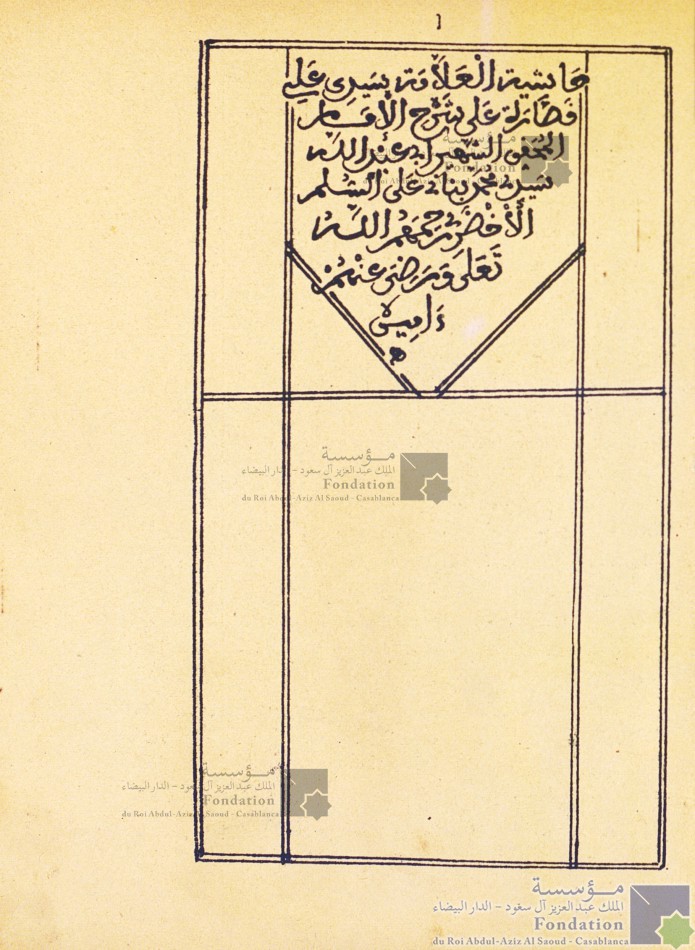 ١
حاشية العلامة سيدي علي
قصارة على شرح الإمام
المحقق الشهير أبي عبد الله
سيدي محمد بناني على السلم
الأخضري رحمهم الله
تعلى ورضي عنهم
ءامين
مؤسسة
الملك عبد العزيز آل سعود - الدار البيضاء
Fondation
du Roi Abdul-Aziz Al Saoud - Casablanca
مؤسسة
الملك عبد العزيز آل سعود - الدار البيضاء
Fondation
du Roi Abdul-Aziz Al Saoud - Casablanca
مؤسسة
الملك عبد العزيز آل سعود - الدار البيضاء
Fondation
du Roi Abdul-Aziz Al Saoud - Casablanca